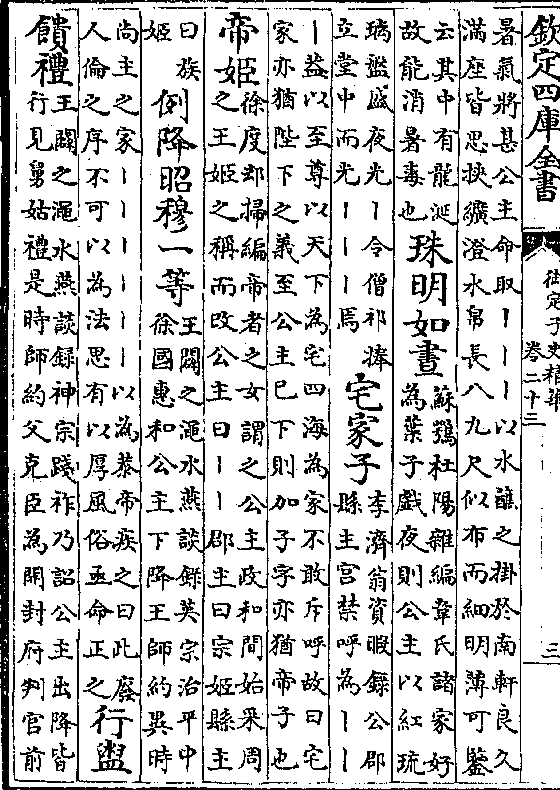 欽定四庫全書
御定子史精華
卷二十三
三
暑氣將甚公主命取丨丨丨以水蘸之掛於南軒良久
滿座皆思挾纊澄水帛長八九尺似布而細明薄可鑒
云其中有龍涎
故能消暑毒也
珠明如晝
蘇鶚杜陽雜編韋氏諸家好
為葉子戲夜則公主以紅琉
璃盤盛夜光丨令僧祁捧
立堂中而光丨丨丨焉
宅家子
李濟翁資暇錄公郡
縣主宮禁呼為丨丨
丨蓋以至尊以天下為宅四海為家不敢斥呼故曰宅
家亦猶陛下之義至公主已下則加子字亦猶帝子也
帝姬
徐度却掃編帝者之女謂之公主政和間始采周
之王姬之稱而改公主曰丨丨郡主曰宗姬縣主
曰族
姬
例降昭穆一等
王闢之澠水燕談錄英宗治平中
徐國惠和公主下降王師約異時
尚主之家丨丨丨丨丨以為恭帝疾之曰此廢
人倫之序不可以為法思有以厚風俗亟命正之
行盥
饋禮
王闢之澠水燕談錄神宗踐祚乃詔公主出降皆
行見舅姑禮是時師約父克臣為開封府判官前